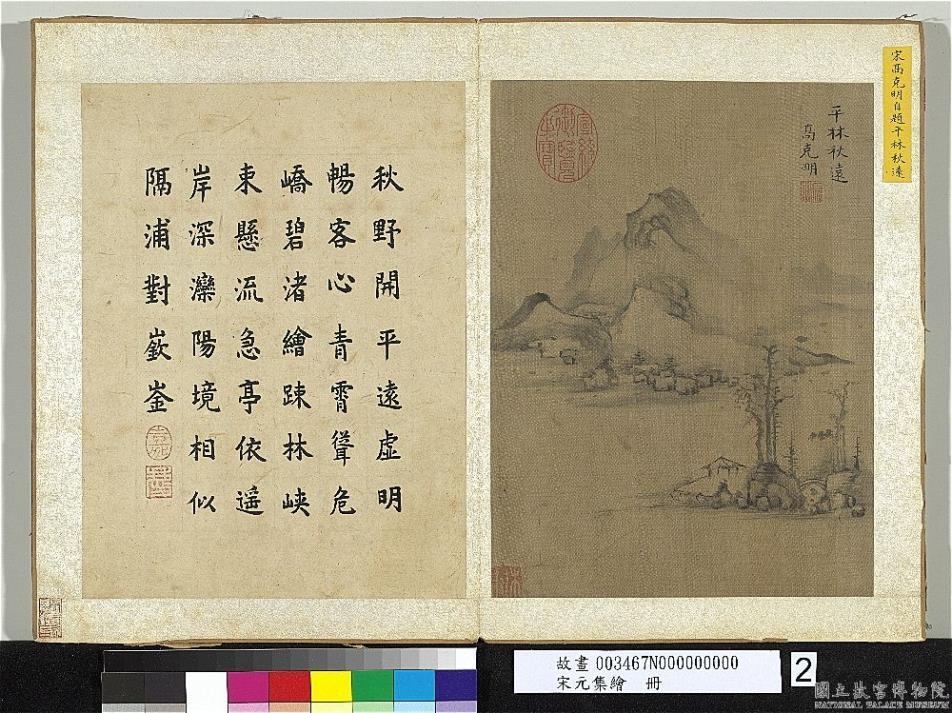 宋高克明自題平林秋遠
平林秋遠
高克明
宣統御覽之寶
秋野開平遠虛明
暢客心青霄聳危
嶠碧渚繪踈林峽
束懸流急亭依遥
岸深灤陽境相似
隔浦對嶔崟
故畫 003467N000000000
宋元集繪　冊
2
國立故宮博物院
NATIONAL PALACE MUSEUM